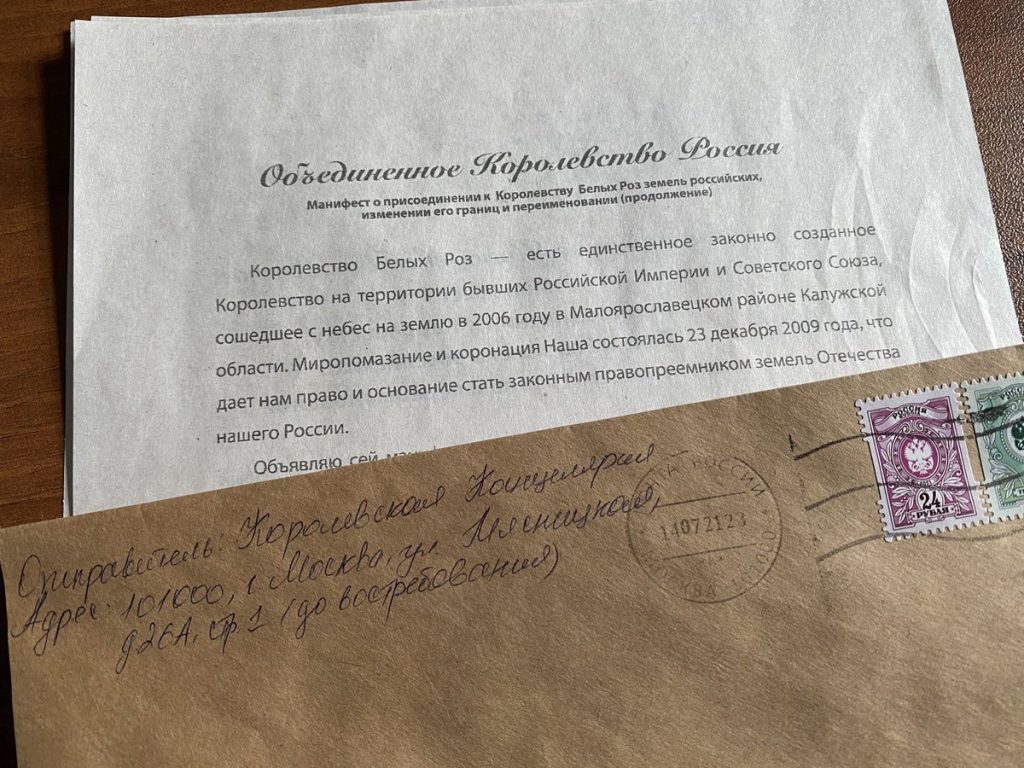 Объединенное Королевство Россия
Манифест о присоединении к Королевству Белых Роз земель российских,
изменении его границ и переименовании (продолжение)
Королевство Белых Роз — есть единственное законно созданное
Королевство на территории бывших Российской Империи и Советского Союза,
сошедшее с небес на землю в 2006 году в Малоярославецком районе Калужской
области. Миропомазание и коронация Наша состоялась 23 декабря 2009 года, что
дает нам право и основание стать законным правопреемником земель Отечества
нашего России.
Объявляю сей
Отправитель: Королевская Канцелярия
Адрес: 101000, г. Москва, ул. Мясницкая,
д.26А, стр.1 (до востребования)
РОССИИ
14072123
МОСКВА
РОССИЯ
24
РУБЛЯ